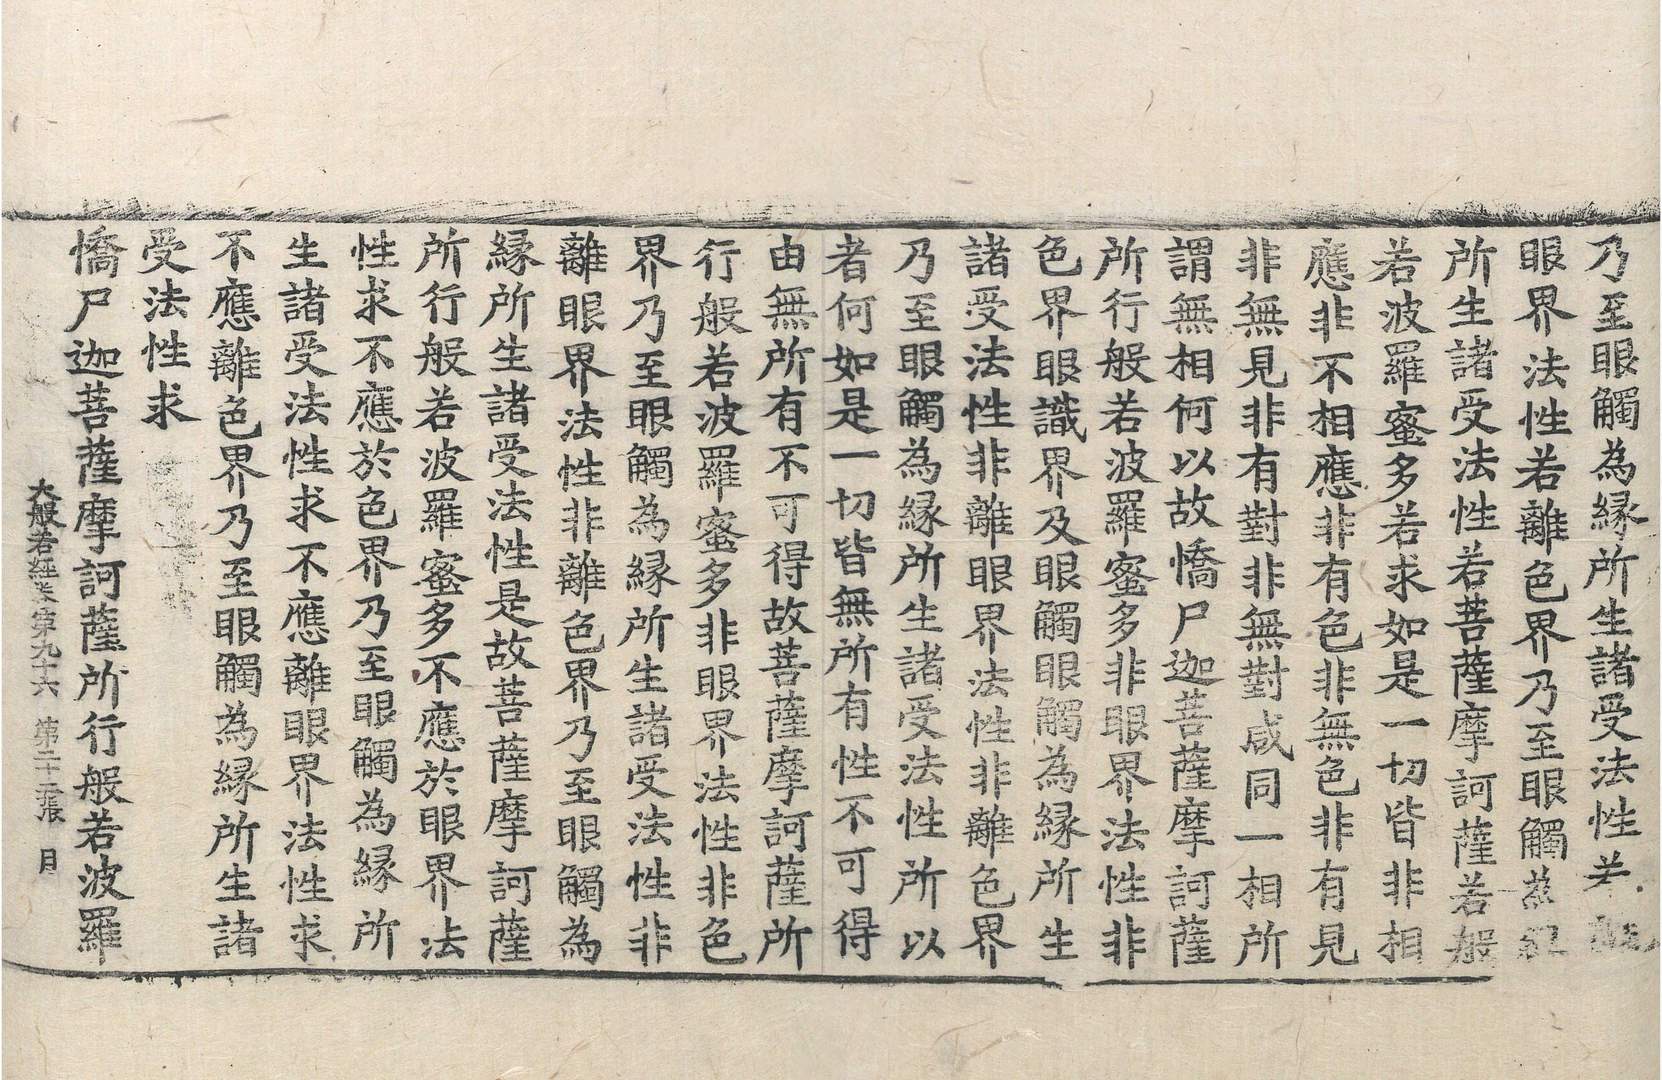 乃至眼觸為緣所生諸受法性若離
眼界法性若離色界乃至眼觸為緣
所生諸受法性若菩薩摩訶薩若般
若波羅蜜多若求如是一切皆非相
應非不相應非有色非無色非有見
非無見非有對非無對咸同一相所
謂無相何以故憍尸迦菩薩摩訶薩
所行般若波羅蜜多非眼界法性非
色界眼識界及眼觸眼觸為緣所生
諸受法性非離眼界法性非離色界
乃至眼觸為緣所生諸受法性所以
者何如是一切皆無所有性不可得
由無所有不可得故菩薩摩訶薩所
行般若波羅蜜多非眼界法性非色
界乃至眼觸為緣所生諸受法性非
離眼界法性非離色界乃至眼觸為
緣所生諸受法性是故菩薩摩訶薩
所行般若波羅蜜多不應於眼界法
性求不應於色界乃至眼觸為緣所
生諸受法性求不應離眼界法性求
不應離色界乃至眼觸為緣所生諸
受法性求
憍尸迦菩薩摩訶薩所行般若波羅
大般若經卷第九十六 第二十張 目